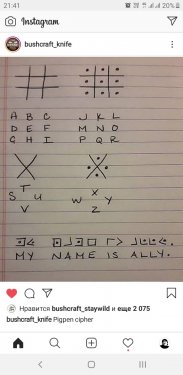 21:41
20%
Instagram
bushcraft_knife
A B C J K L
D E F M N O
G H I P Q R
S T U V W X Y Z
MY NAME IS ALLY.
Нравится bushcraft_staywild и еще 2 075
bushcraft_knife Pigpen cipher